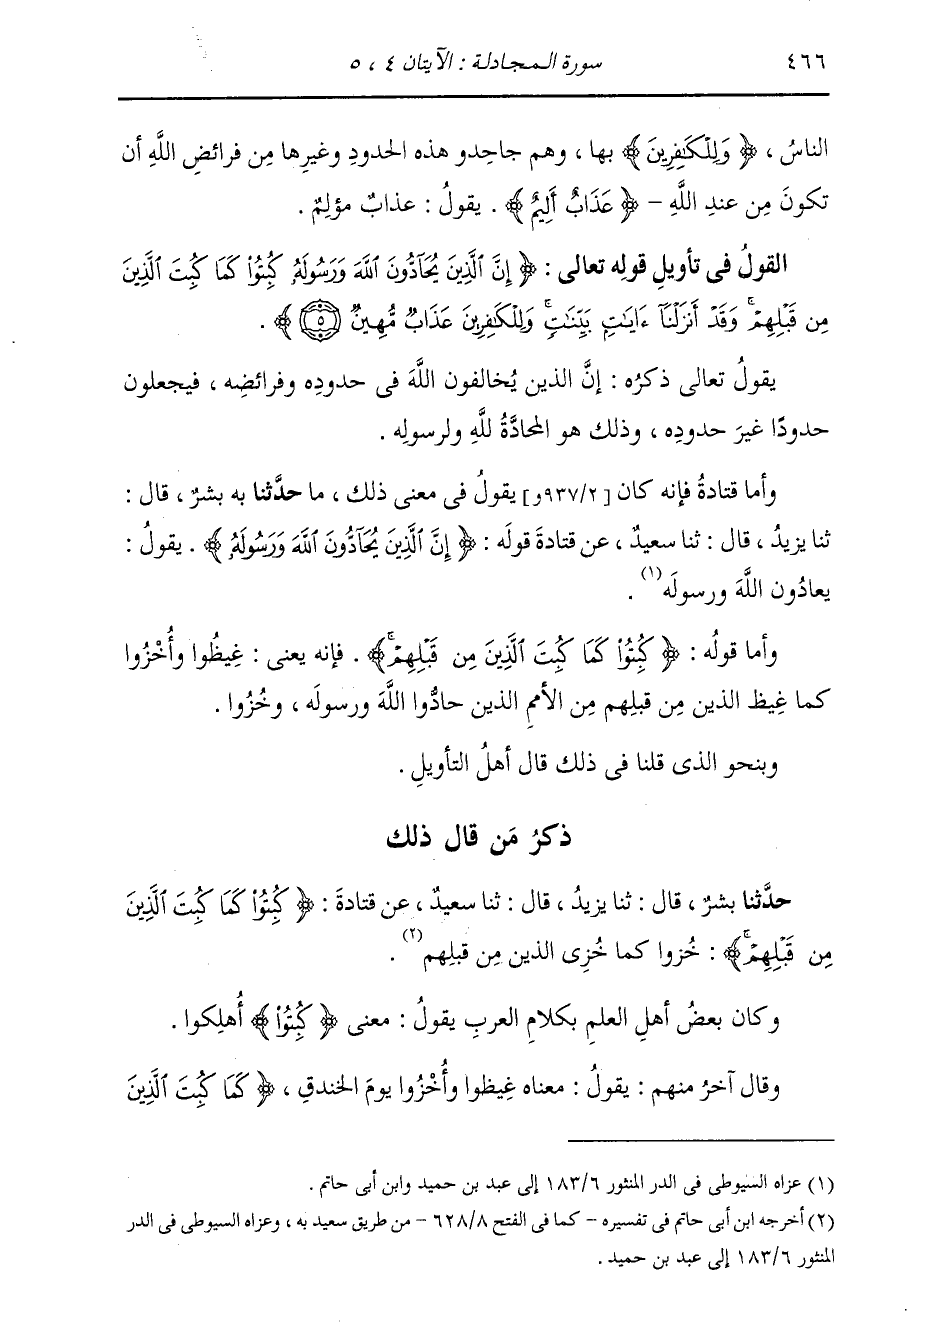 ٤٦٦ سورة المجادلة : الآيتان ٤ ، ٥
الناسُ ، ﴿ وَلِلْكَٰفِرِينَ ﴾ بها ، وهم جاحِدو هذه الحدودِ وغيرِها مِن فرائضِ اللَّهِ أن
تكونَ مِن عندِ اللَّهِ - ﴿ عَذَابٌ أَلِيمٌ ﴾ . يقولُ : عذابٌ مؤلِمٌ .
القولُ فى تأويلِ قولِه تعالى : ﴿ إِنَّ ٱلَّذِينَ يُحَآدُّونَ ٱللَّهَ وَرَسُولَهُۥ كُبِتُوا۟ كَمَا كُبِتَ ٱلَّذِينَ
مِن قَبْلِهِمْ ۚ وَقَدْ أَنزَلْنَآ ءَايَٰتٍۭ بَيِّنَٰتٍ ۚ وَلِلْكَٰفِرِينَ عَذَابٌ مُّهِينٌ ٥ ﴾ .
يقولُ تعالى ذكرُه : إنَّ الذين يُخالفون اللَّهَ فى حدودِه وفرائضِه ، فيجعلون
حدودًا غيرَ حدودِه ، وذلك هو المحادَّةُ للَّهِ ولرسولِه .
وأما قتادةُ فإنه كان [٩٣٧/٢و] يقولُ فى معنى ذلك ، ما حدَّثنا به بشرٌ ، قال :
ثنا يزيدُ ، قال : ثنا سعيدٌ ، عن قتادةَ قولَه : ﴿ إِنَّ ٱلَّذِينَ يُحَآدُّونَ ٱللَّهَ وَرَسُولَهُۥ ﴾ . يقولُ :
يعادُون اللَّهَ ورسولَه(١) .
وأما قولُه : ﴿ كُبِتُوا۟ كَمَا كُبِتَ ٱلَّذِينَ مِن قَبْلِهِمْ ۚ ﴾ . فإنه يعنى : غِيظُوا وأُخْزُوا
كما غِيظ الذين مِن قبلِهم مِن الأممِ الذين حادُّوا اللَّهَ ورسولَه ، وخُزُوا .
وبنحوِ الذى قلنا فى ذلك قال أهلُ التأويلِ .
ذكرُ مَن قال ذلك
حدَّثنا بشرٌ ، قال : ثنا يزيدُ ، قال : ثنا سعيدٌ ، عن قتادةَ : ﴿ كُبِتُوا۟ كَمَا كُبِتَ ٱلَّذِينَ
مِن قَبْلِهِمْ ۚ ﴾ : خُزوا كما خُزِى الذين مِن قبلِهم(٢) .
وكان بعضُ أهلِ العلمِ بكلامِ العربِ يقولُ : معنى ﴿ كُبِتُوا۟ ﴾ أُهلِكوا .
وقال آخرُ منهم : يقولُ : معناه غِيظوا وأُخْزُوا يومَ الخندقِ ، ﴿ كَمَا كُبِتَ ٱلَّذِينَ
(١) عزاه السيوطى فى الدر المنثور ١٨٣/٦ إلى عبد بن حميد وابن أبى حاتم .
(٢) أخرجه ابن أبى حاتم فى تفسيره - كما فى الفتح ٦٢٨/٨ - من طريق سعيد به ، وعزاه السيوطى فى الدر
المنثور ١٨٣/٦ إلى عبد بن حميد .